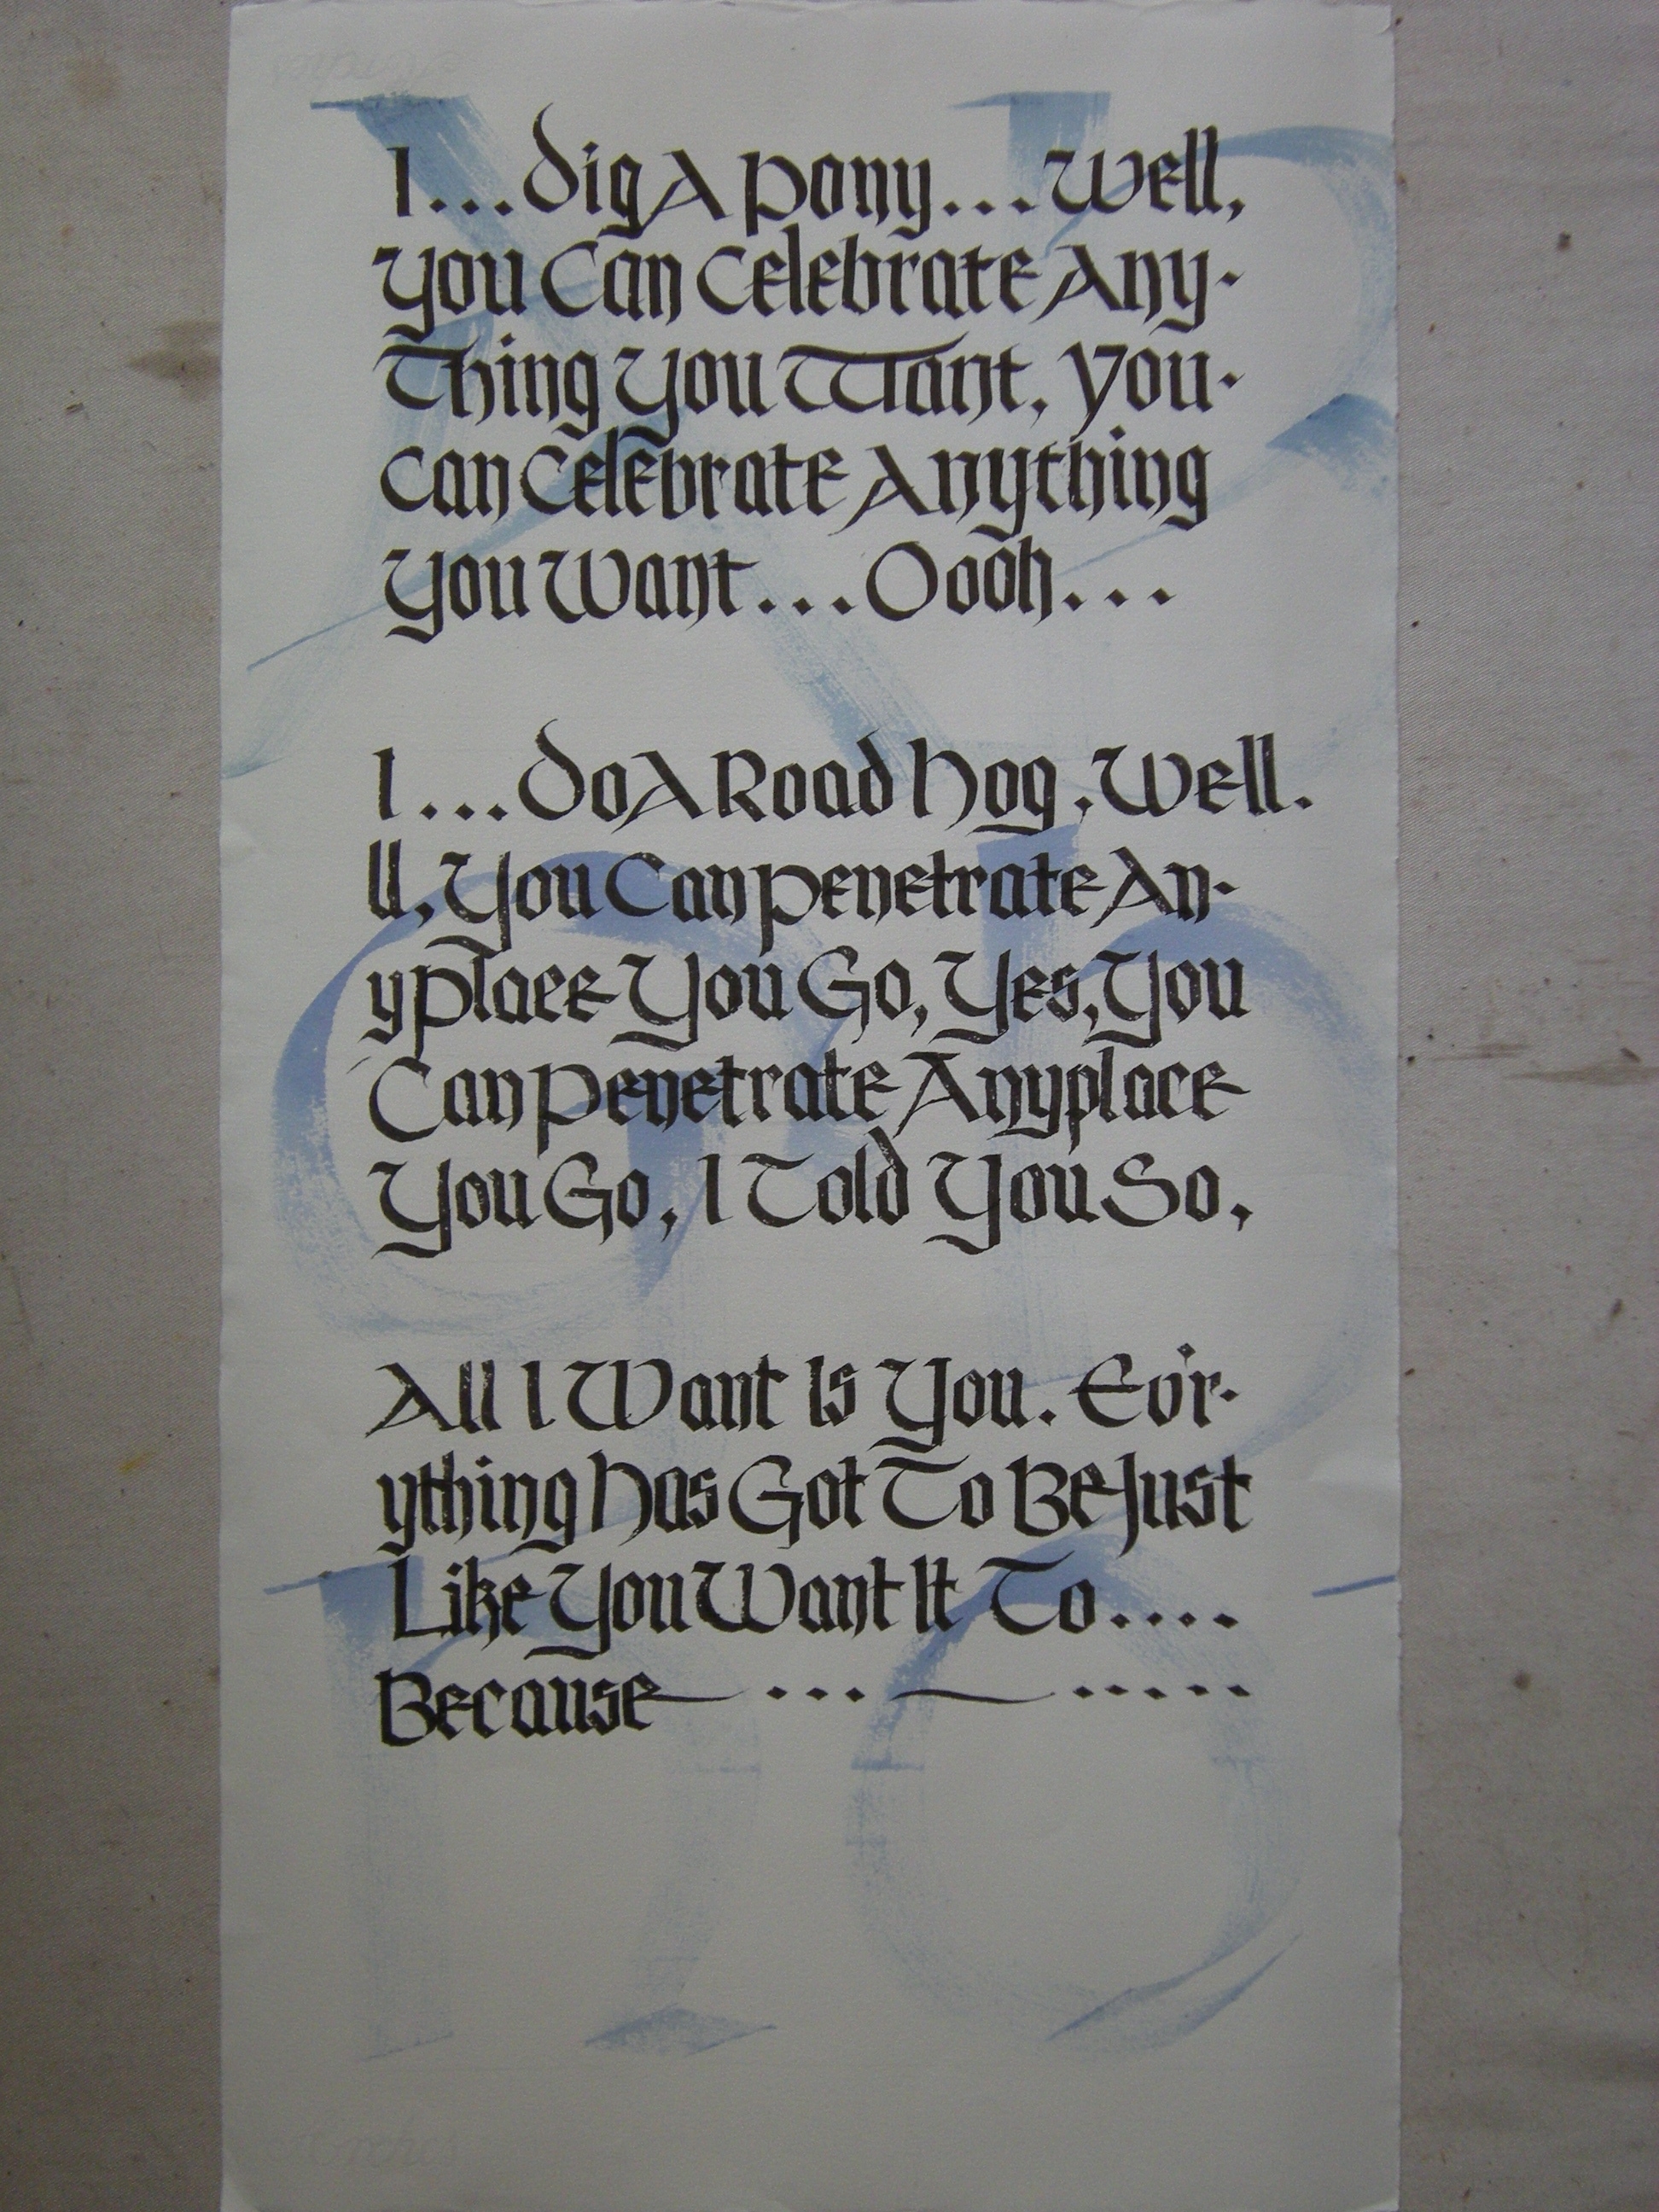 I...Dig A Pony...Well,
You Can Celebrate Any-
Thing You Want, You-
Can Celebrate Anything
You Want...Oooh...
I...Do A Road Hog, Well.
ll, You Can Penetrate An-
yplace You Go, Yes, You
Can Penetrate Anyplace
You Go, I Told You So,
All I Want Is You. Ev'r-
ything Has Got To Be Just
Like You Want It To....
Because ... .....